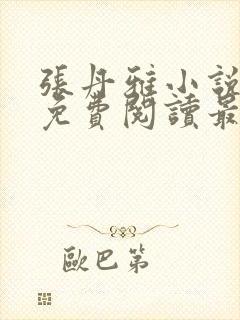 張丹雅小說
免費閱讀最
歐巴第